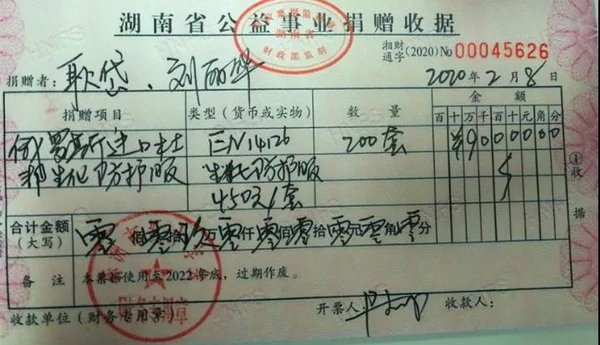 湖南省公益事业捐赠收据
财政部监制
湘财
通字(2020) No 00045626
捐赠者：耿岱、刘丽华 2020年2月8日
捐赠项目 类型（货币或实物） 数量 金额
百十万千百十元角分
俄罗斯进口杜邦生化防护服 EN14126生化防护服450元/套 200套 ¥9000000
①收据
合计金额（大写） 零佰零拾玖万零仟零佰零拾零元零角零分
备注 本票据使用至2022年底，过期作废。
收款单位（财务专用章） 开票人： 收款人：